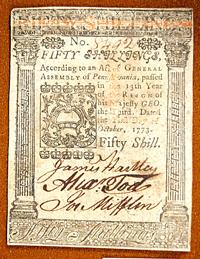 FIFTY SHILLINGS.
No.
FIFTY SHILLINGS,
According to an Act of GENERAL
ASSEMBLY of Pennsylvania, passed
in the 13th Year
of the REIGN of
his Majesty GEO.
the Third. Dated
the Day of
October, 1773.
Fifty Shill.
James Hartley
Jos. Mifflin